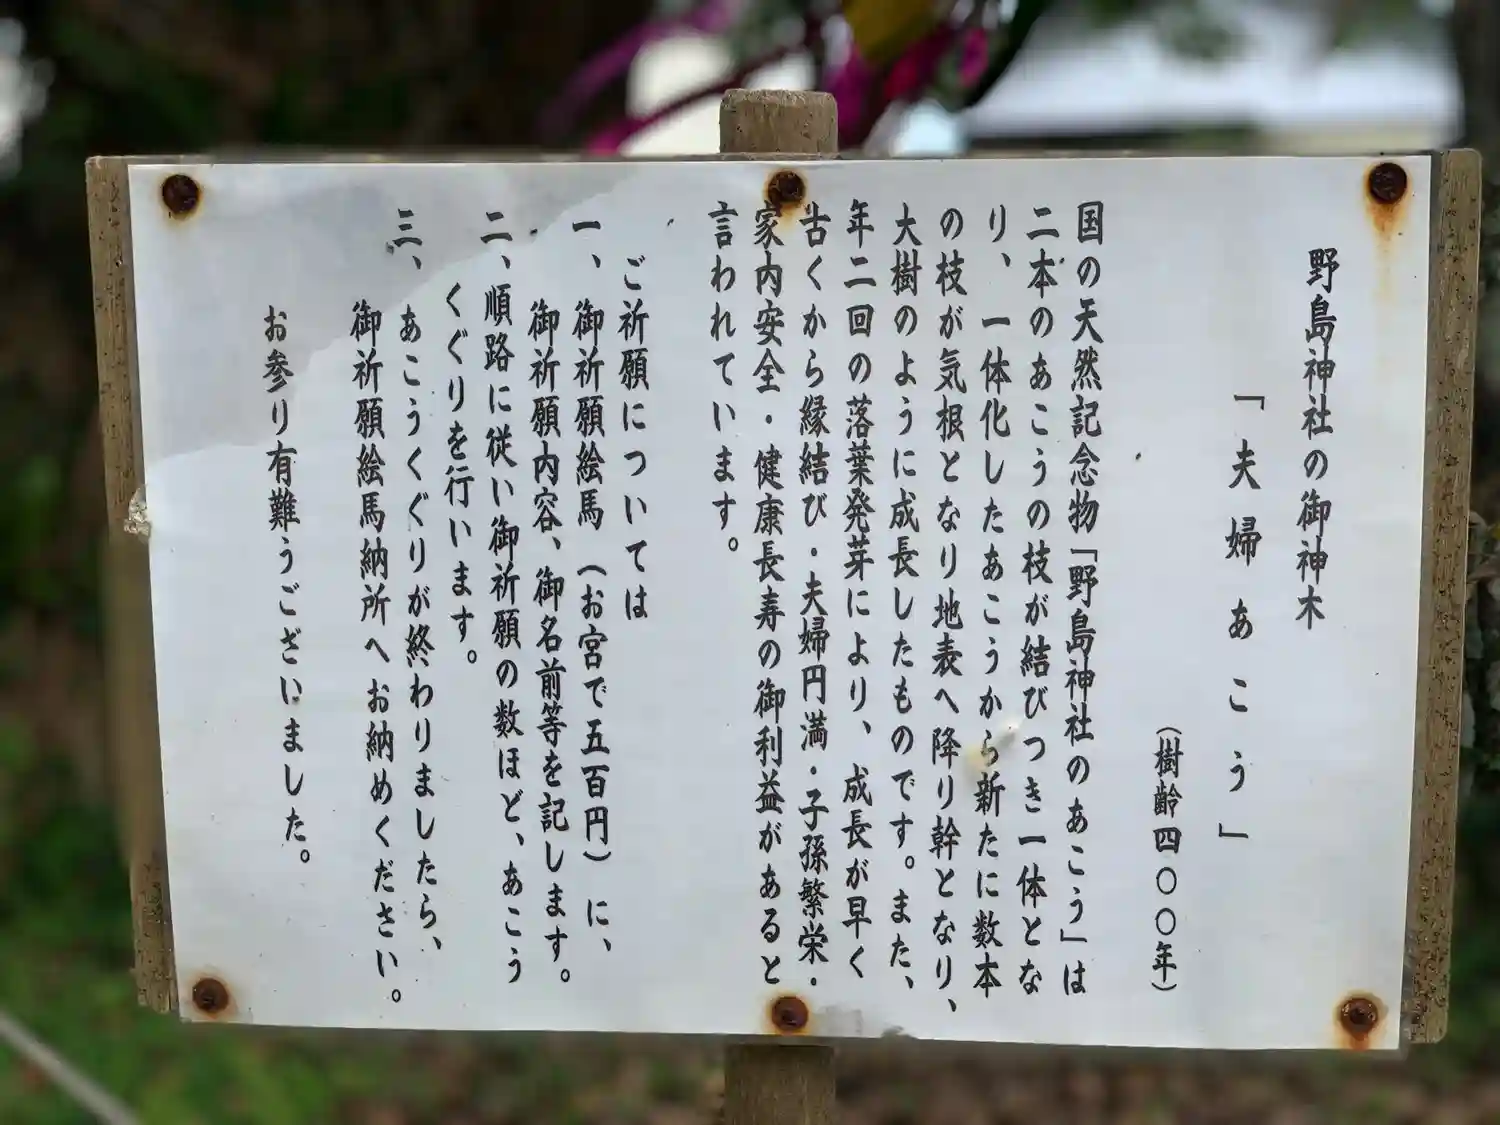 野島神社の御神木
「夫婦あこう」
(樹齢四〇〇年)
国の天然記念物「野島神社のあこう」は
二本のあこうの枝が結びつき一体とな
り、一体化したあこうから新たに数本
の枝が気根となり地表へ降り幹となり、
大樹のように成長したものです。また、
年二回の落葉発芽により、成長が早く
古くから縁結び・夫婦円満・子孫繁栄・
家内安全・健康長寿の御利益があると
言われています。
ご祈願については
一、御祈願絵馬(お宮で五百円)に、
御祈願内容、御名前等を記します。
二、順路に従い御祈願の数ほど、あこう
くぐりを行います。
三、あこうくぐりが終わりましたら、
御祈願絵馬納所へお納めください。
お参り有難うございました。